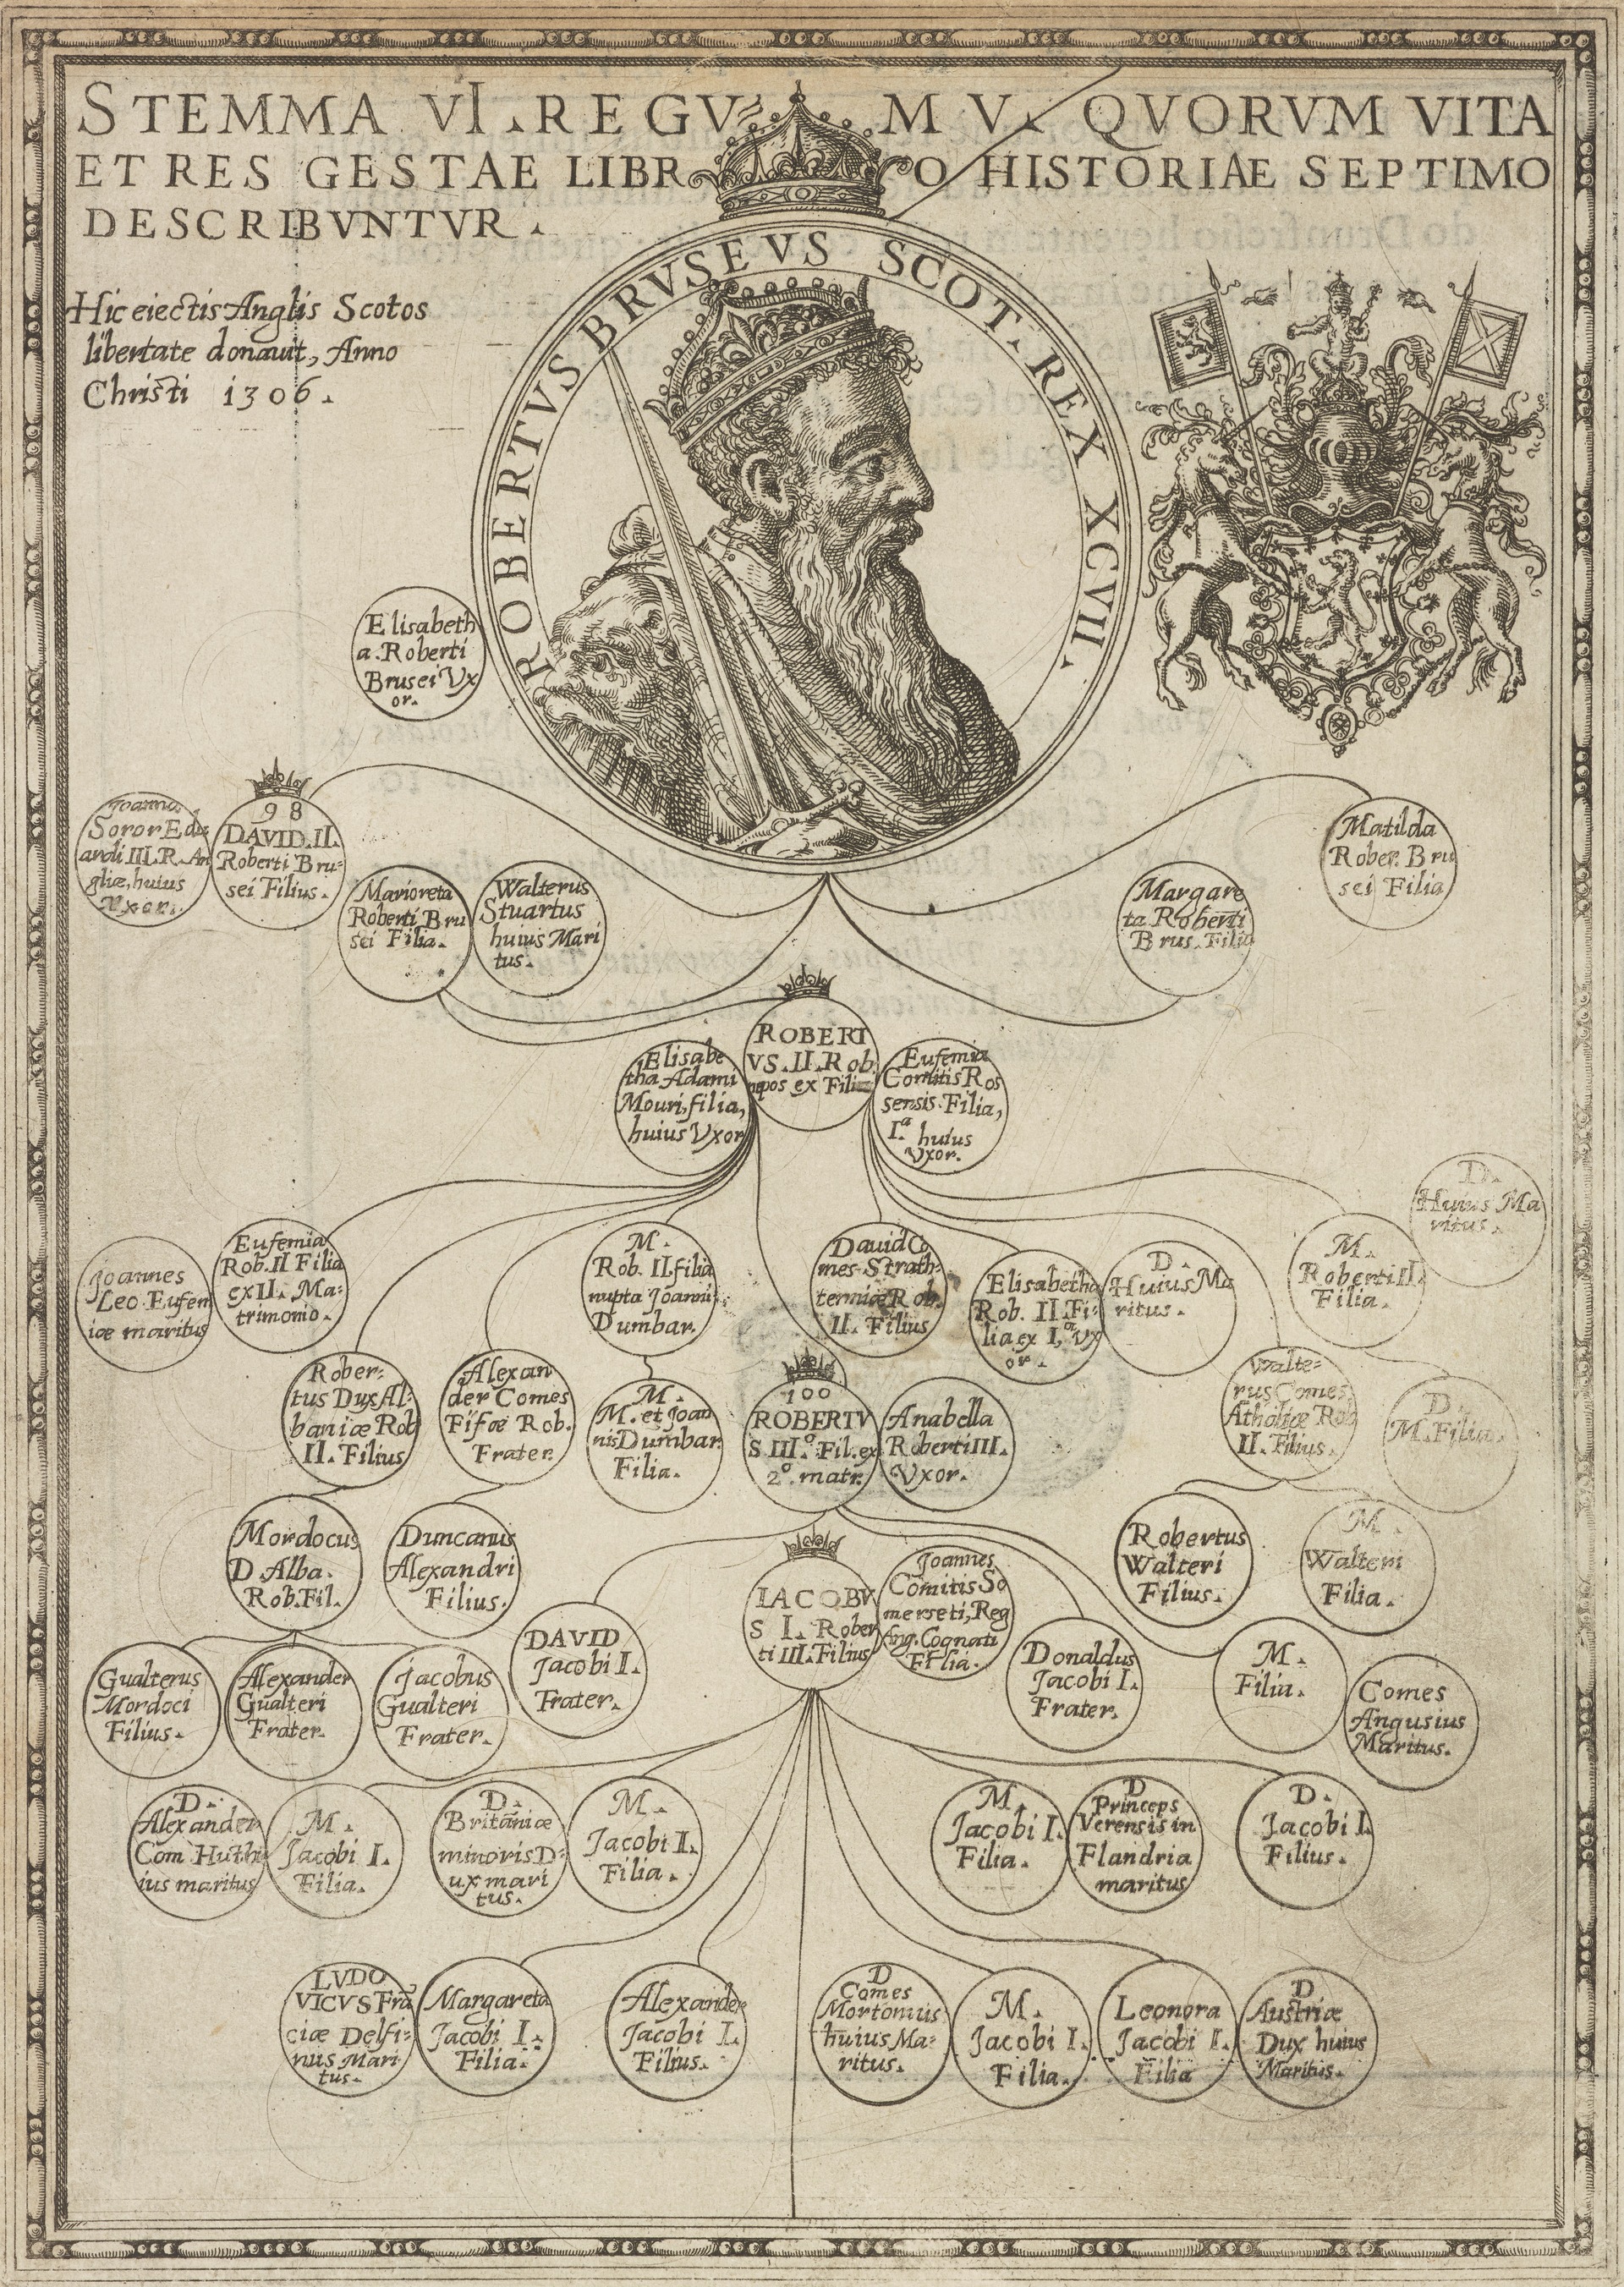 STEMMA VI. REGVM V. QVORVM VITA
ET RES GESTAE LIBRO HISTORIAE SEPTIMO
DESCRIBVNTVR.
Hic eiectis Anglis Scotos
libertate donauit, Anno
Christi 1306.
ROBERTVS BRVSEVS SCOT. REX XCVII.
Elisabeth
a. Roberti
Brusei Vx
or.
Joanna
Soror Edu
ardi III. R. An
gliæ, huius
Vxor.
98
DAVID. II.
Roberti Bru=
sei Filius.
Marioreta
Roberti Bru
sei Filia.
Walterus
Stuartus
huius Mari
tus.
Margare
ta Roberti
Brus. Filia
Matilda
Rober. Bru
sei Filia
Elisabe
tha Adami
Mouri, filia,
huius Vxor
ROBERT
VS. II. Rob.
nepos ex Filia
Eufemia
Comitis Ros
sensis. Filia,
I.a huius
Vxor.
Joannes
Leo. Eufem
iæ maritus
Eufemia
Rob. II Filia
ex II. Ma=
trimonio.
M.
Rob. II filia
nupta Joanni
Dumbar.
Dauid Co
mes Strath=
terniæ Rob.
II. Filius
Elisabetha
Rob. II. Fi=
lia ex I.a Vx
or.
D.
Huius Ma
ritus.
M.
Roberti II
Filia.
D.
Huius Ma
ritus.
Rober=
tus Dux Al=
baniæ Rob
II. Filius
Alexan
der Comes
Fifæ Rob.
Frater.
M.
M. et Joan
nis Dumbar.
Filia.
100
ROBERTV
S III.o Fil. ex
2.o matr.
Anabella
Roberti III.
Vxor.
Walte=
rus Comes
Atholiæ Rob
II. Filius.
D.
M. Filia.
Mordocus
D. Alba.
Rob. Fil.
Duncanus
Alexandri
Filius.
IACOBV
S I. Rober
ti III. Filius
Joannes
Comitis So
merseti, Reg
Ang. Cognati
Filia.
Robertus
Walteri
Filius.
M.
Walteri
Filia.
Gualterus
Mordoci
Filius.
Alexander
Gualteri
Frater.
Jacobus
Gualteri
Frater.
DAVID
Jacobi I.
Frater.
Donaldus
Jacobi I.
Frater.
M.
Filia.
Comes
Angusius
Maritus.
D.
Alexander
Com Huthi
ius maritus
M.
Jacobi I.
Filia.
D.
Britāniæ
minoris D=
ux mari
tus.
M.
Jacobi I.
Filia.
M.
Jacobi I.
Filia.
D
Princeps
Verensis in
Flandria
maritus
D.
Jacobi I.
Filius.
LVDO
VICVS Frā
ciæ Delfi=
nus Mari
tus.
Margareta
Jacobi I.
Filia.
Alexander
Jacobi I.
Filius.
D
Comes
Mortonius
huius Ma=
ritus.
M.
Jacobi I.
Filia.
Leonora
Jacobi I.
Filia
D
Austriæ
Dux huius
Maritus.